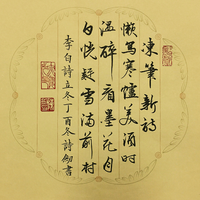 凍筆新詩
懶寫寒爐美酒時
溫醉看墨花月
白恍疑雪滿前村
李白詩立冬丁酉冬詩書